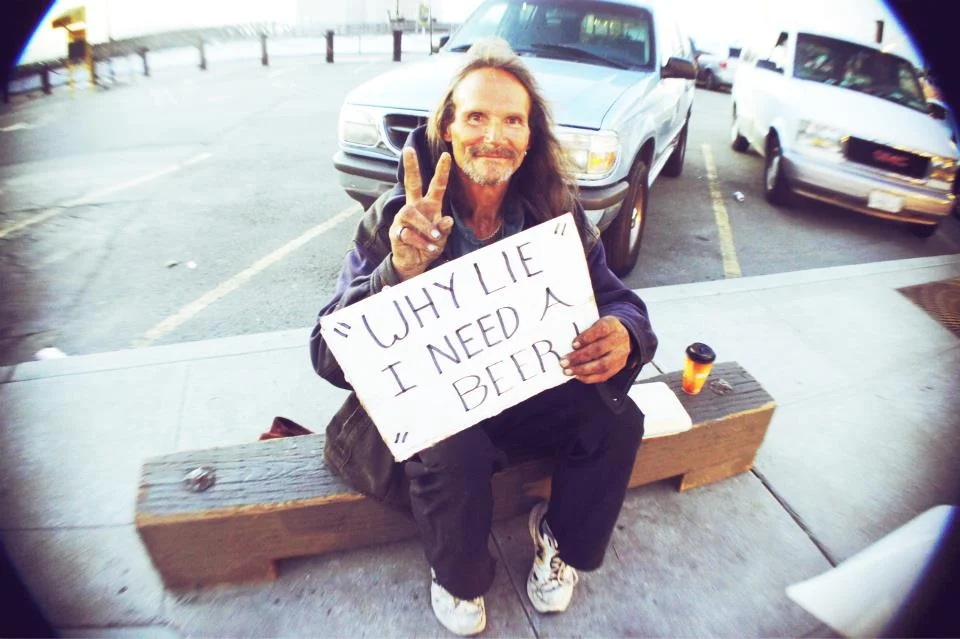 "WHY LIE"
I NEED A
BEER!
"
GMC